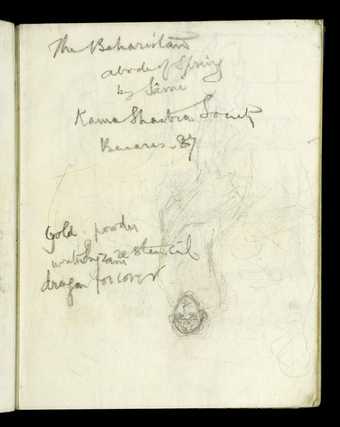 The Beharistan
abode of Spring
by Jâmi
Kama Shastra Society
Benares. 87
Gold. powder
stencil
dragon for cover